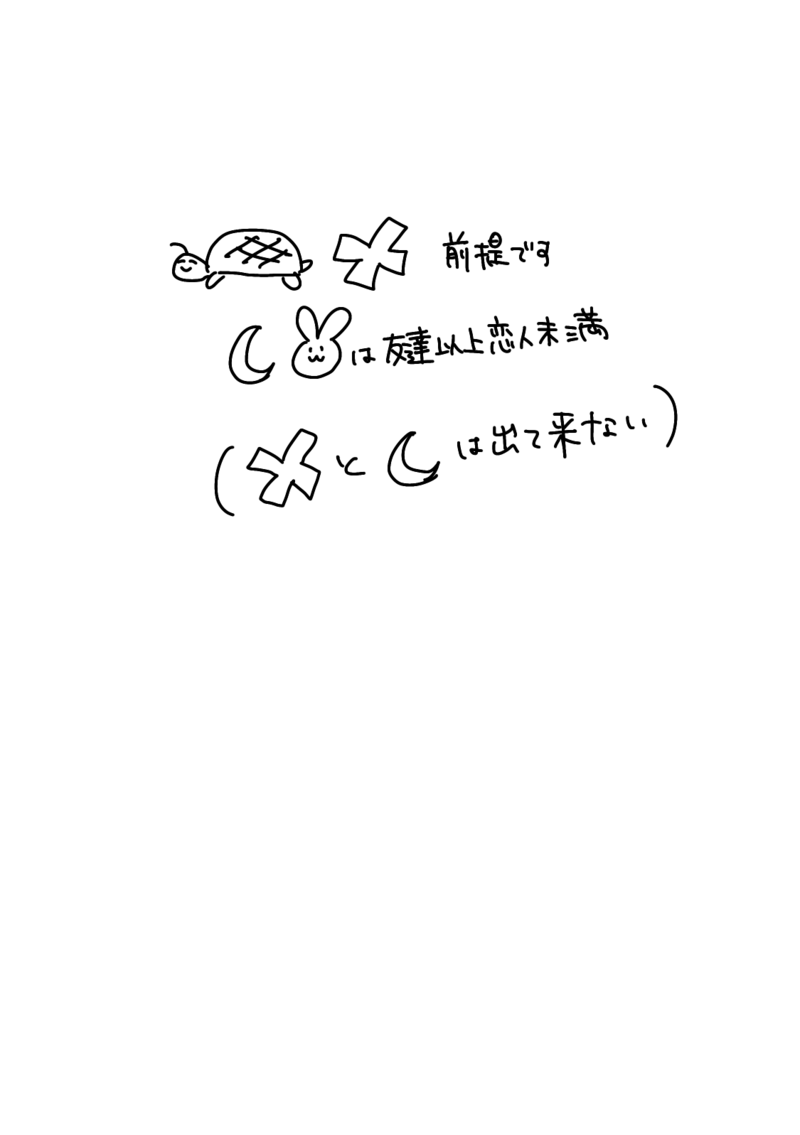 前提です
は友達以上恋人未満
(と は出て来ない)